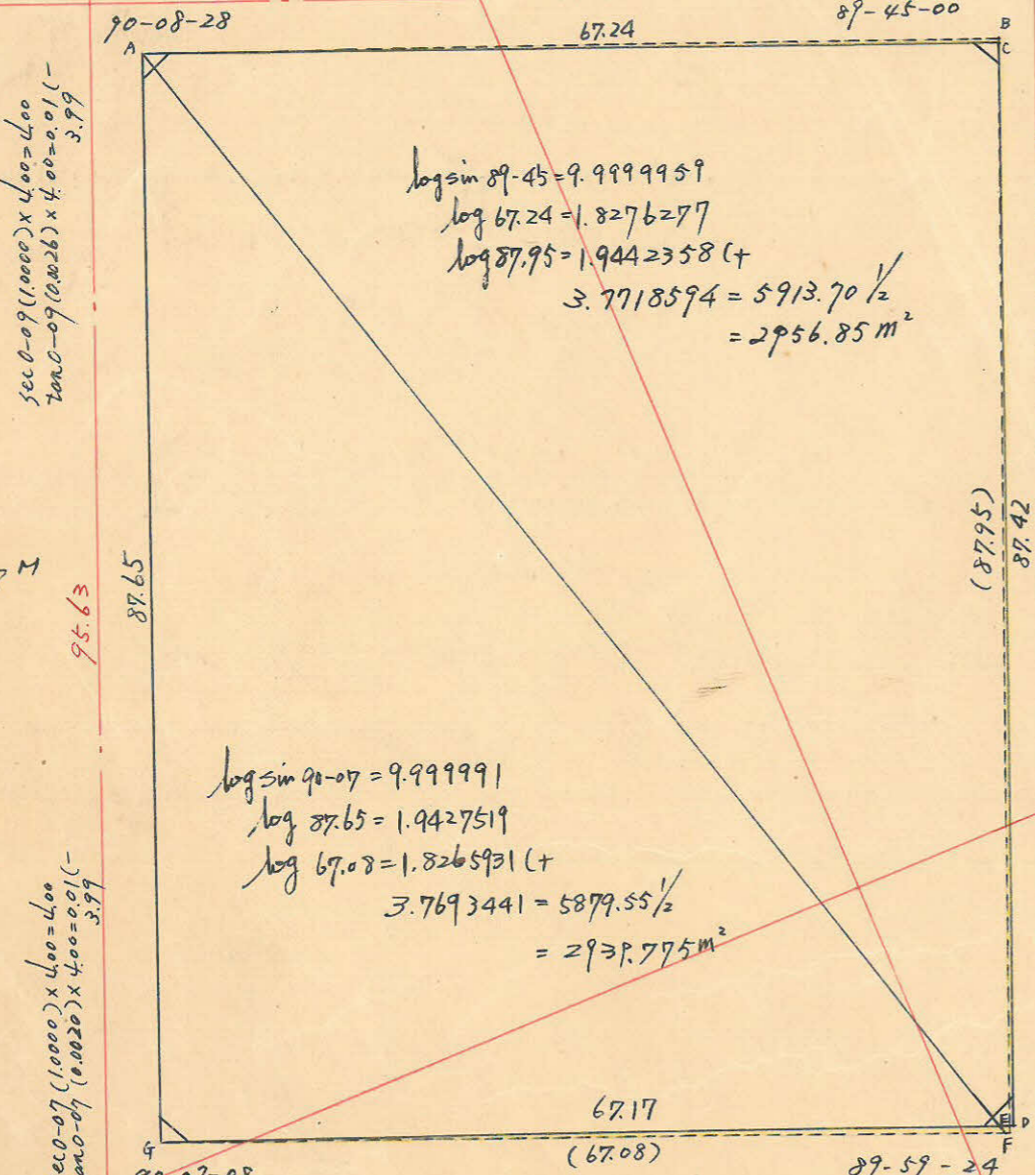 90-08-28
67.24
89-45-00
A
B
C
sec 0-09 (1.0000) x 4.00 = 4.00
tan 0-09 (0.0026) x 4.00 = 0.01 (-
3.99
log sin 89-45 = 9.9999959
log 67.24 = 1.8276277
log 87.95 = 1.9442358 (+
3.7718594 = 5913.70 1/2
= 2956.85 m²
M
95.63
87.65
(87.95)
87.42
log sin 90-07 = 9.999991
log 87.65 = 1.9427519
log 67.08 = 1.8265931 (+
3.7693441 = 5879.55 1/2
= 2939.775 m²
sec 0-07 (1.0000) x 4.00 = 4.00
tan 0-07 (0.0020) x 4.00 = 0.01 (-
3.99
67.17
E
D
G
(67.08)
F
89-59-24